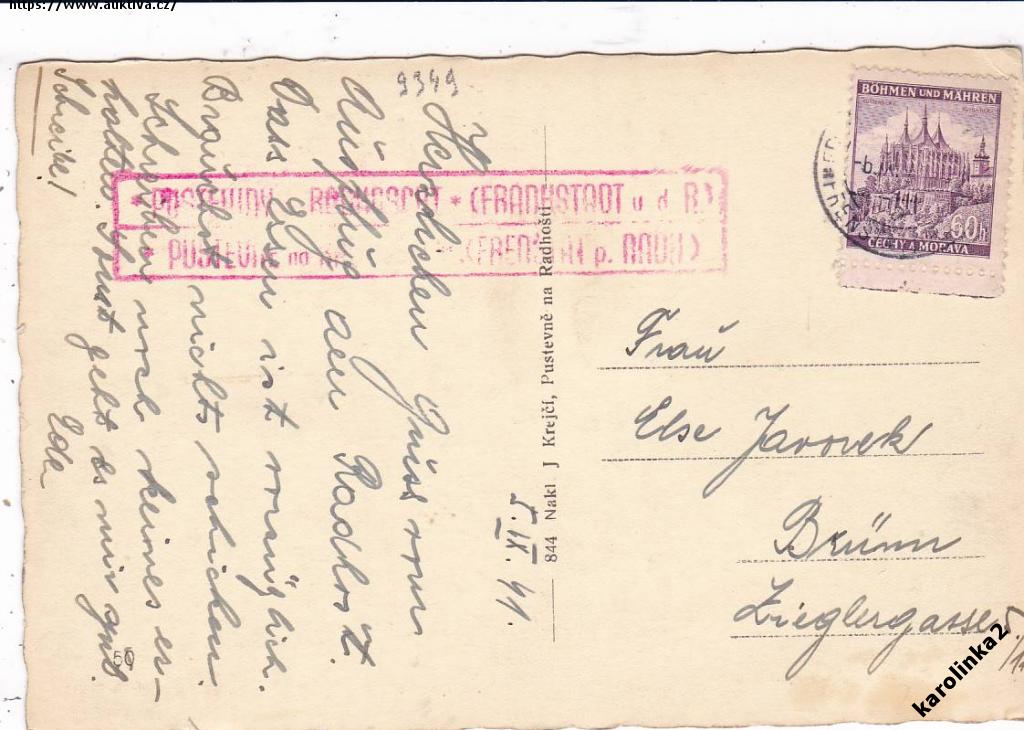 https://www.auktiva.cz/
9349
BÖHMEN UND MÄHREN
60h
ČECHY A MORAVA
* PUSTEVNY - RADHOSCHT * (FRANKSTADT u. d. R.)
* PUSTEVNY na (FRENŠTÁT p. RADH.)
5.IX.41.
Herzlichen Gruss vom
Ausflug am Radhost.
Das Essen ist
Brauchst nichts schicken.
Schreiben noch keines er-
halten. Sonst geht es mir gut.
Schreibe!
Ede
844 Nakl J Krejčí, Pustevně na Radhošti
Frau
Else Javorek
Brünn
Zieglergasse
50
karolinka2